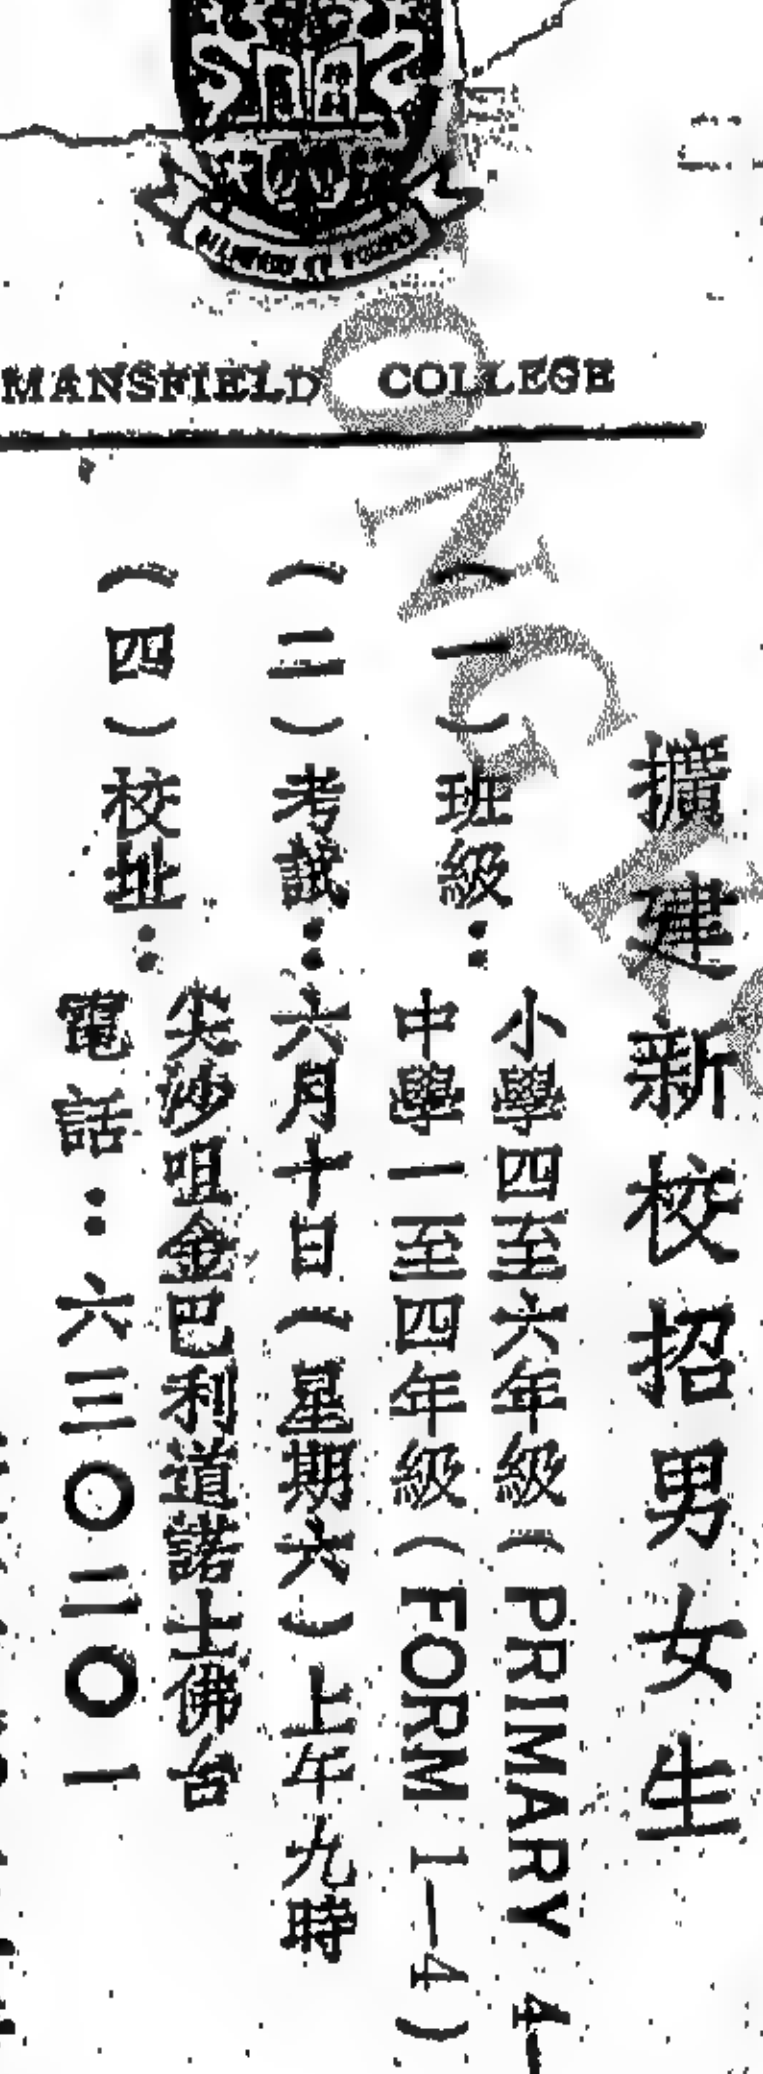 MANSFIELD COLLEGE
擴建新校招男女生
(一)班級：
小學四至六年級(PRIMARY 4—
中學一至四年級(FORM 1—4)
(二)考試：六月十日(星期六)上午九時
(四)校址：
尖沙咀金巴利道諾士佛台
電話：六三〇二〇一